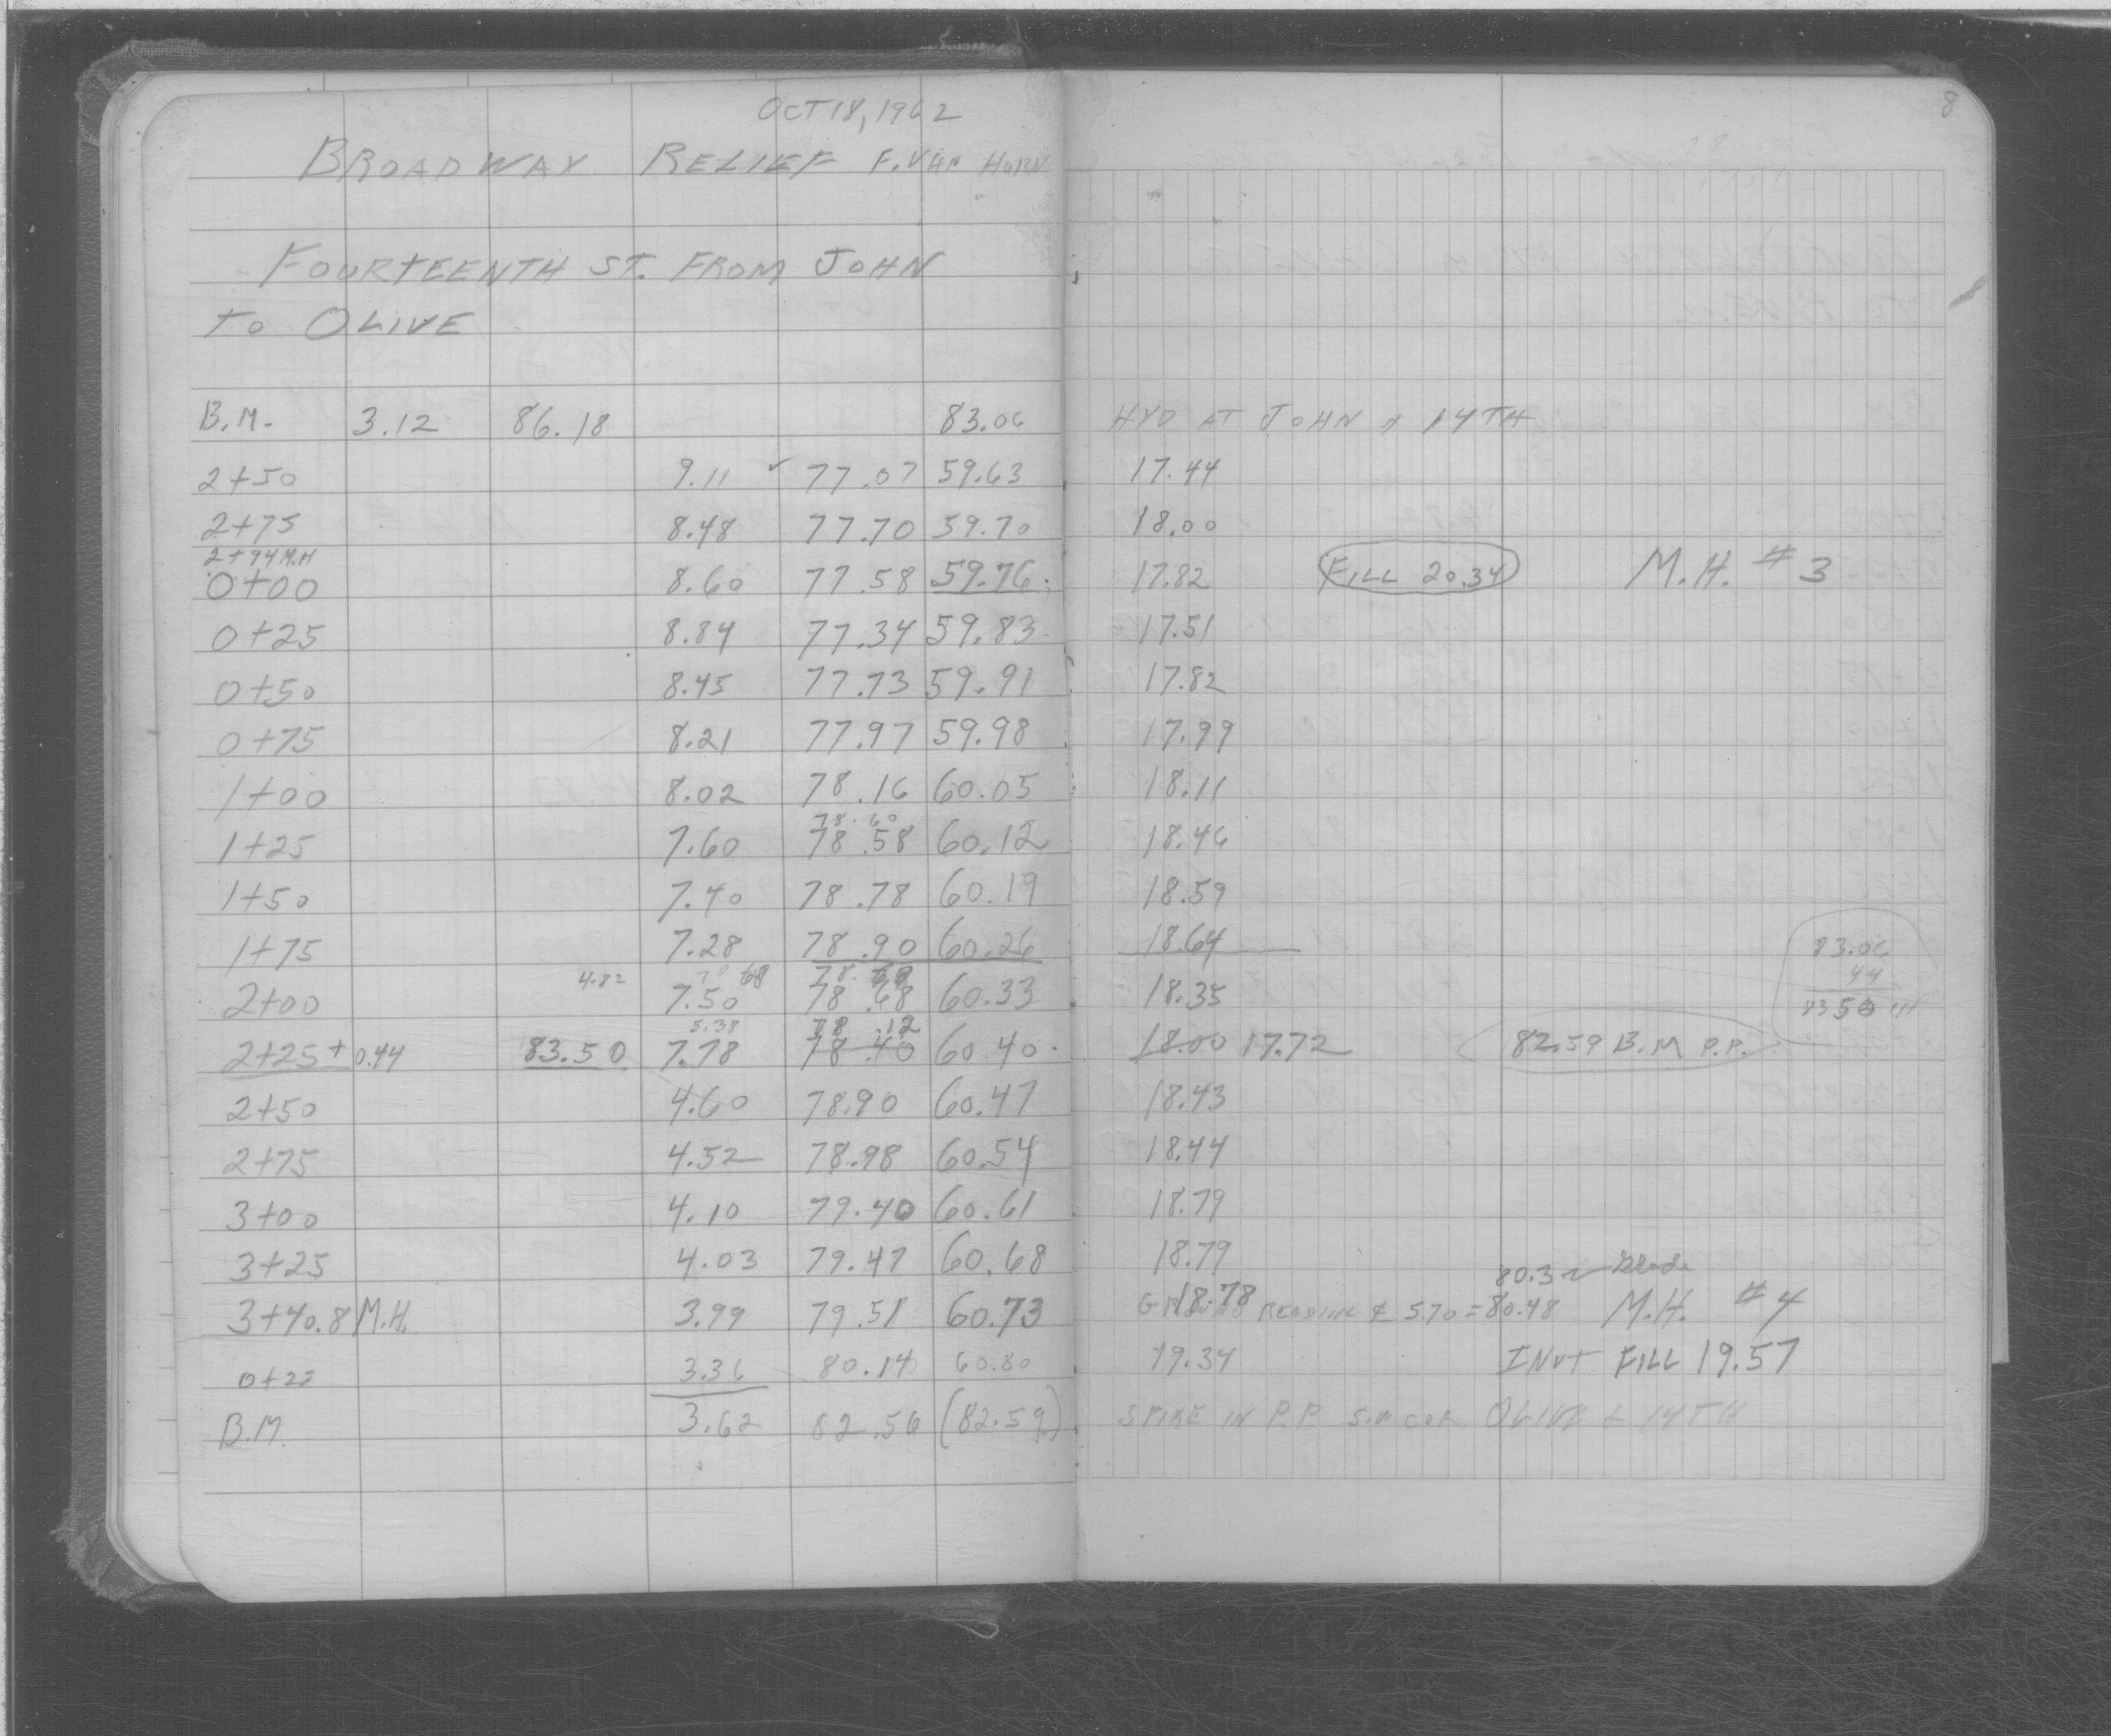 8
OCT 18, 1962
BROADWAY RELIEF F. VAN HORN
FOURTEENTH ST. FROM JOHN
TO OLIVE
B.M. 3.12 86.18 83.06 HYD AT JOHN & 14TH
2+50 9.11 ✓ 77.07 59.63 17.44
2+75 8.48 77.70 59.70 18.00
2+94 M.H
0+00 8.60 77.58 59.76 17.82 FILL 20.34 M.H. #3
0+25 8.84 77.34 59.83 17.51
0+50 8.45 77.73 59.91 17.82
0+75 8.21 77.97 59.98 17.99
1+00 8.02 78.16 60.05 18.11
78.60
1+25 7.60 78.58 60.12 18.46
1+50 7.40 78.78 60.19 18.59
1+75 7.28 78.90 60.26 18.64
83.06
44
83 50
4.82
2+00 7.50 78.68 60.33 18.35
5.38 78.12
2+25 + 0.44 83.50 7.78 78.40 60.40 18.00 17.72 82.59 B.M P.P.
2+50 4.60 78.90 60.47 18.43
2+75 4.52 78.98 60.54 18.44
3+00 4.10 79.40 60.61 18.79
3+25 4.03 79.47 60.68 18.79
80.3 Grade
3+40.8 M.H. 3.99 79.51 60.73 18.78 READING 5.70 = 80.48 M.H. #4
0+25 3.36 80.14 60.80 19.34 INVT FILL 19.57
B.M. 3.62 82.56 (82.59) SPIKE IN P.P S.W COR OLIVE & 14TH